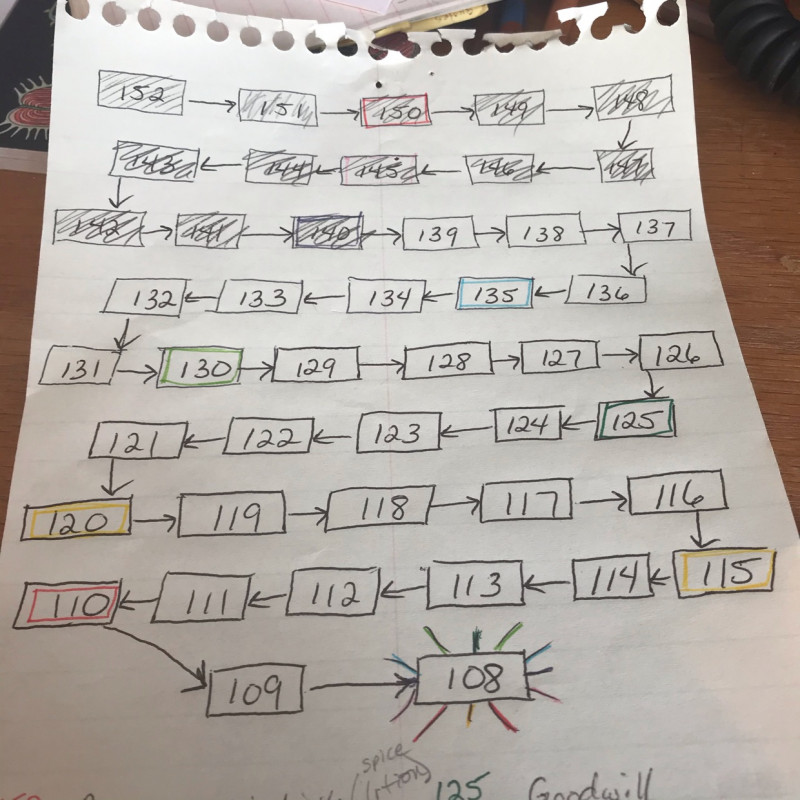 152 151 150 149 148
143 144 145 146 147
142 141 140 139 138 137
132 133 134 135 136
131 130 129 128 127 126
121 122 123 124 125
120 119 118 117 116
110 111 112 113 114 115
109 108
spice
125 Goodwill